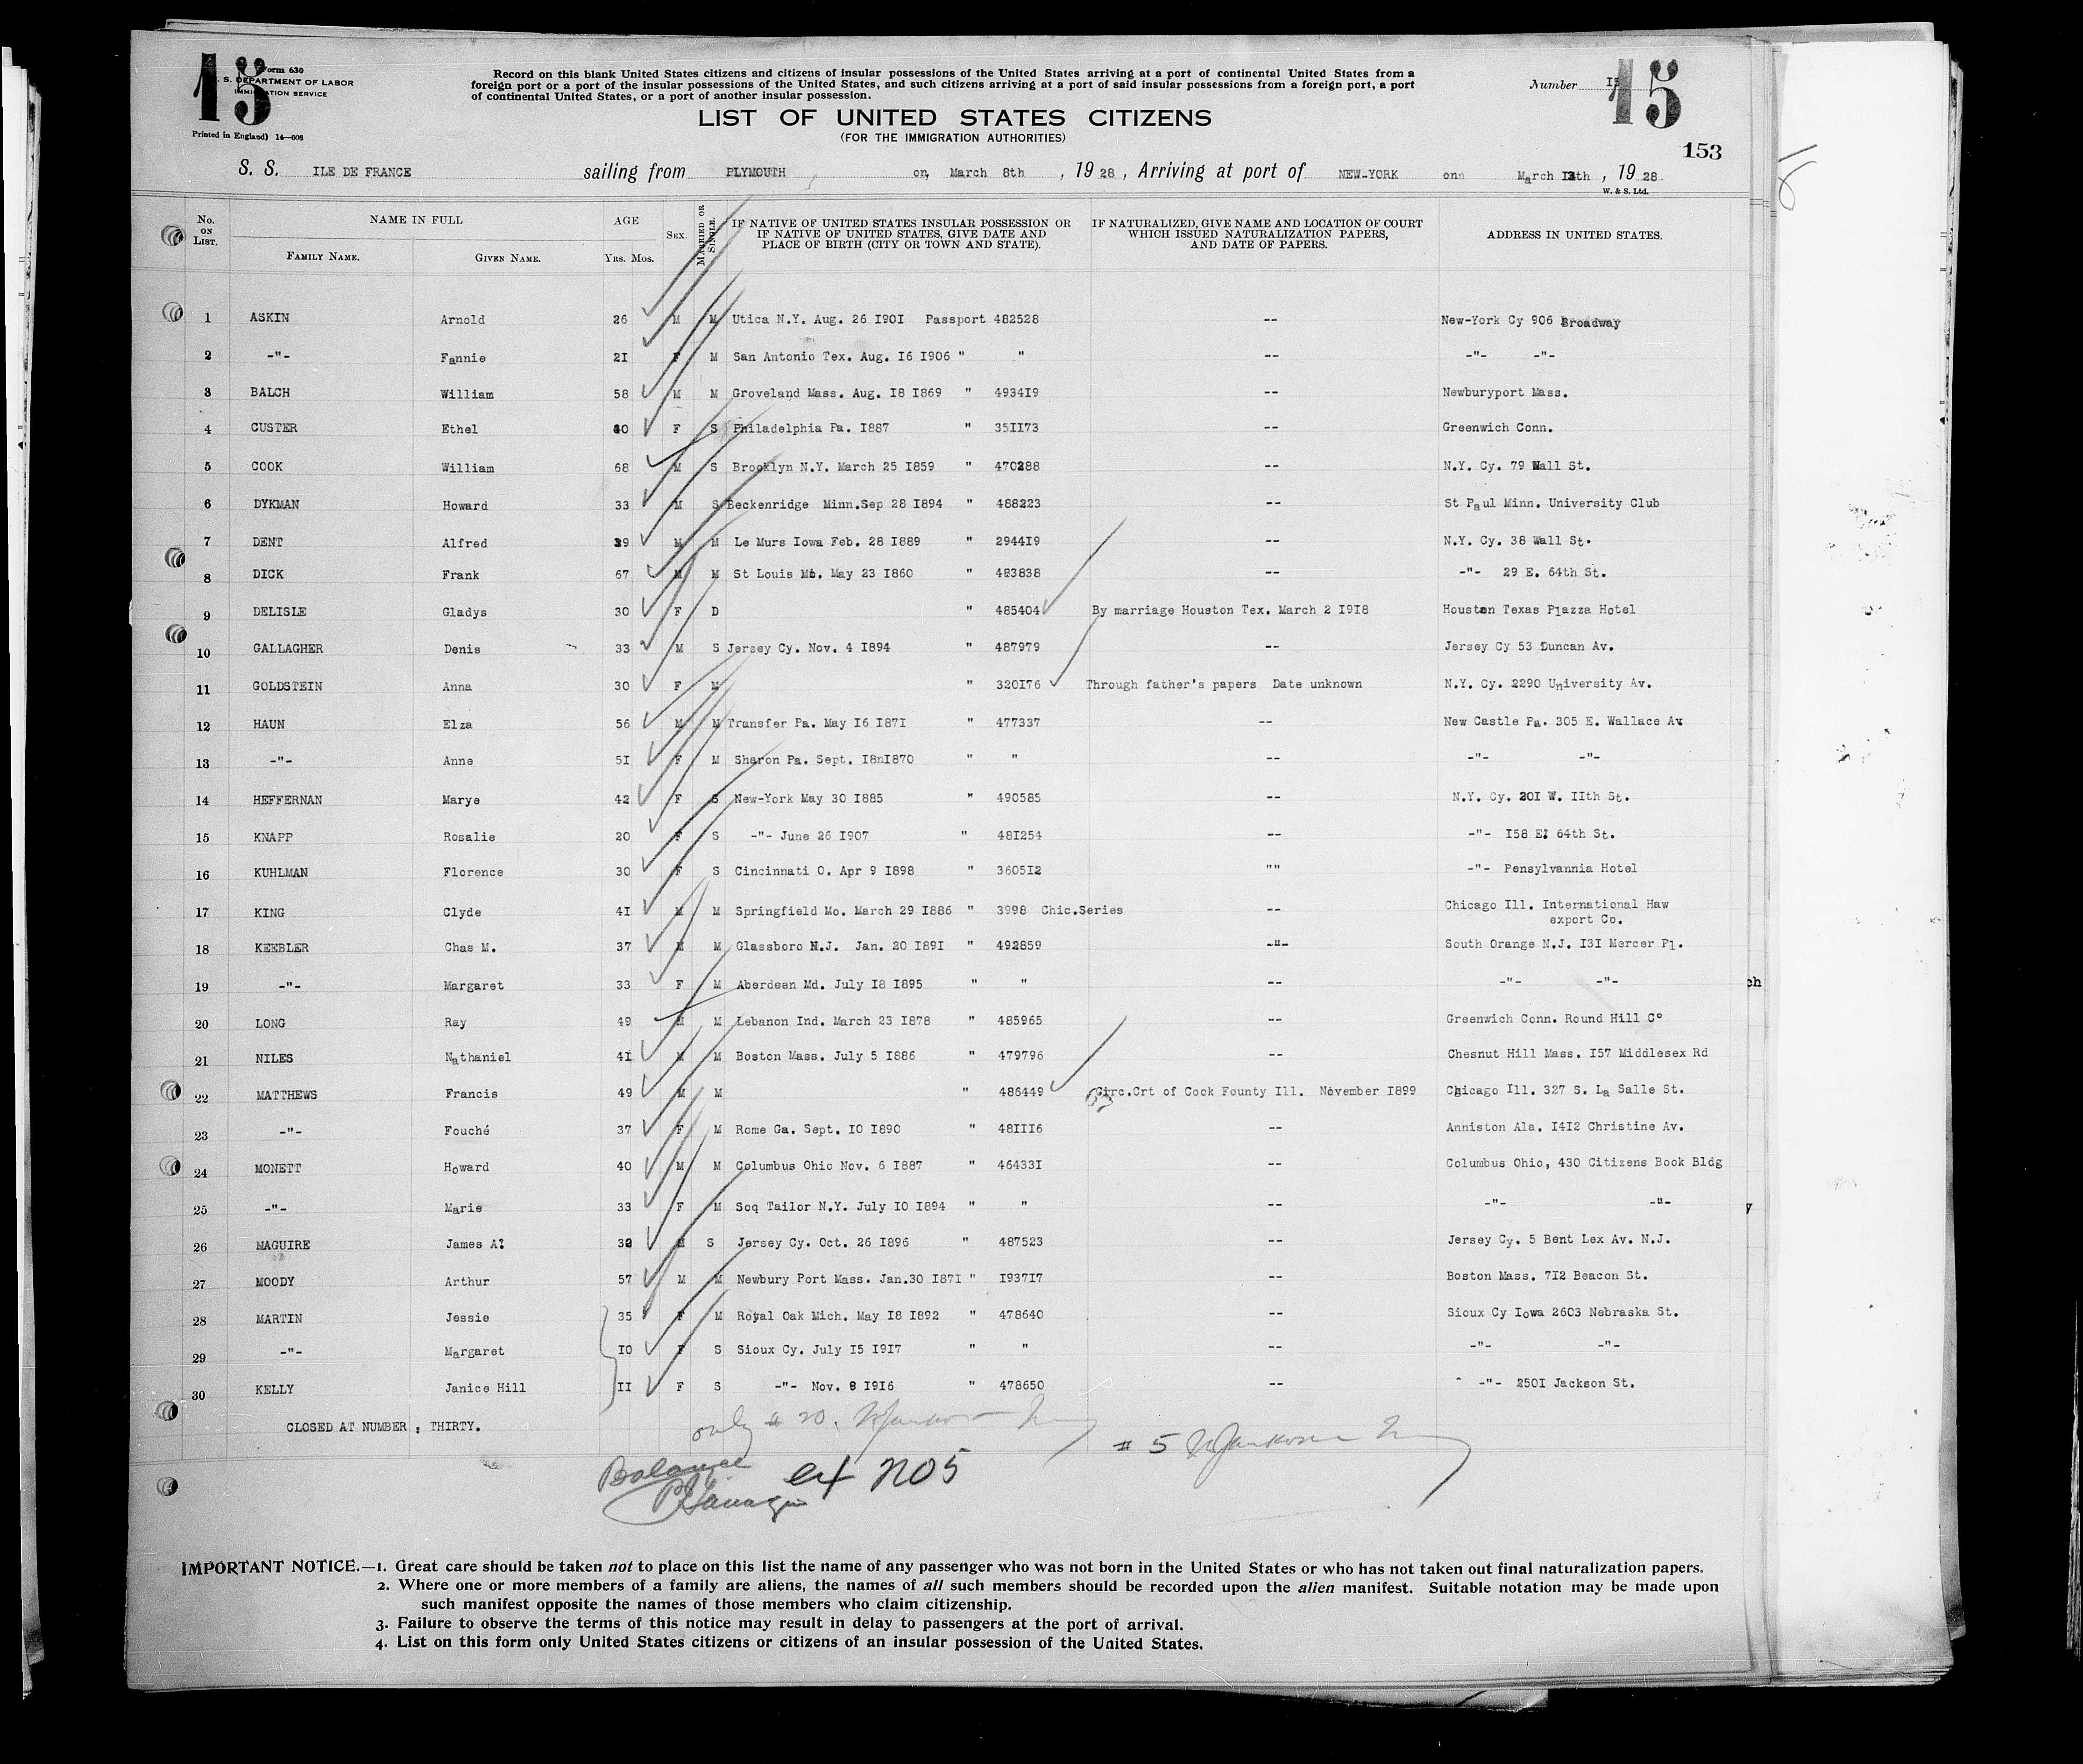 15
Form 630
S. DEPARTMENT OF LABOR
IMMIGRATION SERVICE
Printed in England) 14—608
Record on this blank United States citizens and citizens of insular possessions of the United States arriving at a port of continental United States from a
foreign port or a port of the insular possessions of the United States, and such citizens arriving at a port of said insular possessions from a foreign port, a port
of continental United States, or a port of another insular possession.
Number 15
15
LIST OF UNITED STATES CITIZENS
(FOR THE IMMIGRATION AUTHORITIES)
153
S. S. ILE DE FRANCE sailing from PLYMOUTH on, March 8th , 19 28 , Arriving at port of NEW-YORK on March th , 19 28
W. & S. Ltd.
No. ON LIST. NAME IN FULL FAMILY NAME. GIVEN NAME. AGE YRS. MOS. SEX. MARRIED OR SINGLE. IF NATIVE OF UNITED STATES INSULAR POSSESSION OR IF NATIVE OF UNITED STATES, GIVE DATE AND PLACE OF BIRTH (CITY OR TOWN AND STATE). IF NATURALIZED, GIVE NAME AND LOCATION OF COURT WHICH ISSUED NATURALIZATION PAPERS, AND DATE OF PAPERS. ADDRESS IN UNITED STATES.
1 ASKIN Arnold 26 M M Utica N.Y. Aug. 26 I90I Passport 482528 -- New-York Cy 906 Broadway
2 -"- Fannie 2I F M San Antonio Tex. Aug. I6 I906 " " -- -"- -"-
3 BALCH William 58 M M Groveland Mass. Aug. I8 I869 " 4934I9 -- Newburyport Mass.
4 CUSTER Ethel 40 F S Philadelphia Pa. I887 " 35II73 -- Greenwich Conn.
5 COOK William 68 M S Brooklyn N.Y. March 25 I859 " 470288 -- N.Y. Cy. 79 Wall St.
6 DYKMAN Howard 33 M S Beckenridge Minn.Sep 28 I894 " 488223 -- St Paul Minn. University Club
7 DENT Alfred 39 M M Le Murs Iowa Feb. 28 I889 " 2944I9 -- N.Y. Cy. 38 Wall St.
8 DICK Frank 67 M M St Louis Mo. May 23 I860 " 483838 -- -"- 29 E. 64th St.
9 DELISLE Gladys 30 F D " 485404 By marriage Houston Tex. March 2 I9I8 Houston Texas Plazza Hotel
10 GALLAGHER Denis 33 M S Jersey Cy. Nov. 4 I894 " 487979 -- Jersey Cy 53 Duncan Av.
11 GOLDSTEIN Anna 30 F M " 320I76 Through father's papers Date unknown N.Y. Cy. 2290 University Av.
12 HAUN Elza 56 M M Transfer Pa. May I6 I87I " 477337 -- New Castle Pa. 305 E. Wallace Av
13 -"- Anne 5I F M Sharon Pa. Sept. I8nI870 " " -- -"- -"-
14 HEFFERNAN Marye 42 F S New-York May 30 I885 " 490585 -- N.Y. Cy. 20I W. IIth St.
15 KNAPP Rosalie 20 F S -"- June 26 I907 " 48I254 -- -"- I58 E. 64th St.
16 KUHLMAN Florence 30 F S Cincinnati O. Apr 9 I898 " 3605I2 "" -"- Pensylvannia Hotel
17 KING Clyde 4I M M Springfield Mo. March 29 I886 " 3998 Chic.Series -- Chicago Ill. International Haw
export Co.
18 KEEBLER Chas M. 37 M M Glassboro N.J. Jan. 20 I89I " 492859 -"- South Orange N.J. I3I Mercer Pl.
19 -"- Margaret 33 F M Aberdeen Md. July I8 I895 " " -- -"- -"-
20 LONG Ray 49 M M Lebanon Ind. March 23 I878 " 485965 -- Greenwich Conn. Round Hill C°
21 NILES Nathaniel 4I M M Boston Mass. July 5 I886 " 479796 -- Chesnut Hill Mass. I57 Middlesex Rd
22 MATTHEWS Francis 49 M M " 486449 Circ.Crt of Cook Founty Ill. November I899 Chicago Ill. 327 S. La Salle St.
23 -"- Fouché 37 F M Rome Ga. Sept. IO I890 " 48III6 -- Anniston Ala. I4I2 Christine Av.
24 MONETT Howard 40 M M Columbus Ohio Nov. 6 I887 " 46433I -- Columbus Ohio, 430 Citizens Book Bldg
25 -"- Marie 33 F M Soq Tailor N.Y. July IO I894 " " -- -"- -"-
26 MAGUIRE James A. M S Jersey Cy. Oct. 26 I896 " 487523 -- Jersey Cy. 5 Bent Lex Av. N.J.
27 MOODY Arthur 57 M M Newbury Port Mass. Jan.30 I87I " I937I7 -- Boston Mass. 7I2 Beacon St.
28 MARTIN Jessie 35 F M Royal Oak Mich. May I8 I892 " 478640 -- Sioux Cy Iowa 2603 Nebraska St.
29 -"- Margaret IO F S Sioux Cy. July I5 I9I7 " " -- -"- -"-
30 KELLY Janice Hill II F S -"- Nov. 8 I9I6 " 478650 -- -"- 250I Jackson St.
CLOSED AT NUMBER : THIRTY.
only # 20.
# 5
Balance
ex 2205
IMPORTANT NOTICE.—1. Great care should be taken not to place on this list the name of any passenger who was not born in the United States or who has not taken out final naturalization papers.
2. Where one or more members of a family are aliens, the names of all such members should be recorded upon the alien manifest. Suitable notation may be made upon
such manifest opposite the names of those members who claim citizenship.
3. Failure to observe the terms of this notice may result in delay to passengers at the port of arrival.
4. List on this form only United States citizens or citizens of an insular possession of the United States.